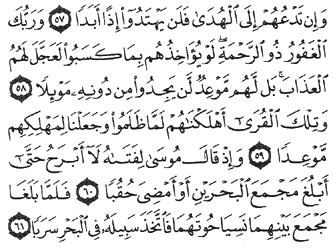 وَإِن تَدْعُهُمْ إِلَى ٱلْهُدَىٰ فَلَن يَهْتَدُوٓا۟ إِذًا أَبَدًا ٥٧ وَرَبُّكَ
ٱلْغَفُورُ ذُو ٱلرَّحْمَةِ ۖ لَوْ يُؤَاخِذُهُم بِمَا كَسَبُوا۟ لَعَجَّلَ لَهُمُ
ٱلْعَذَابَ ۚ بَل لَّهُم مَّوْعِدٌ لَّن يَجِدُوا۟ مِن دُونِهِۦ مَوْئِلًا ٥٨
وَتِلْكَ ٱلْقُرَىٰٓ أَهْلَكْنَٰهُمْ لَمَّا ظَلَمُوا۟ وَجَعَلْنَا لِمَهْلِكِهِم
مَّوْعِدًا ٥٩ وَإِذْ قَالَ مُوسَىٰ لِفَتَىٰهُ لَآ أَبْرَحُ حَتَّىٰٓ
أَبْلُغَ مَجْمَعَ ٱلْبَحْرَيْنِ أَوْ أَمْضِىَ حُقُبًا ٦٠ فَلَمَّا بَلَغَا
مَجْمَعَ بَيْنِهِمَا نَسِيَا حُوتَهُمَا فَٱتَّخَذَ سَبِيلَهُۥ فِى ٱلْبَحْرِ سَرَبًا ٦١